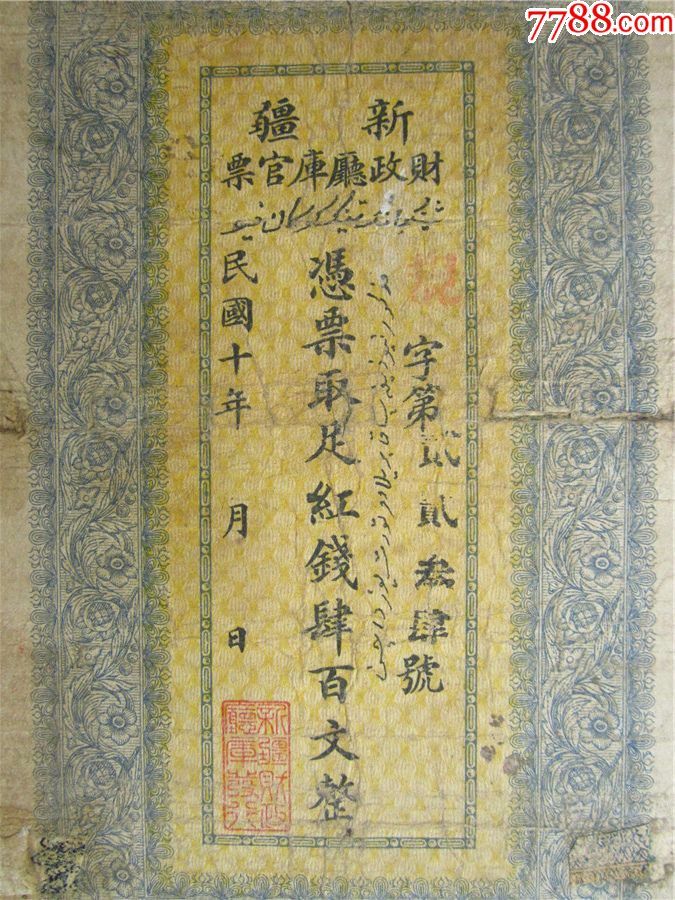 7788.com
新疆
財政廳庫官票
字第貳貳叁肆號
憑票取足紅錢肆百文整
民國十年 月 日
新疆財政
廳庫發行